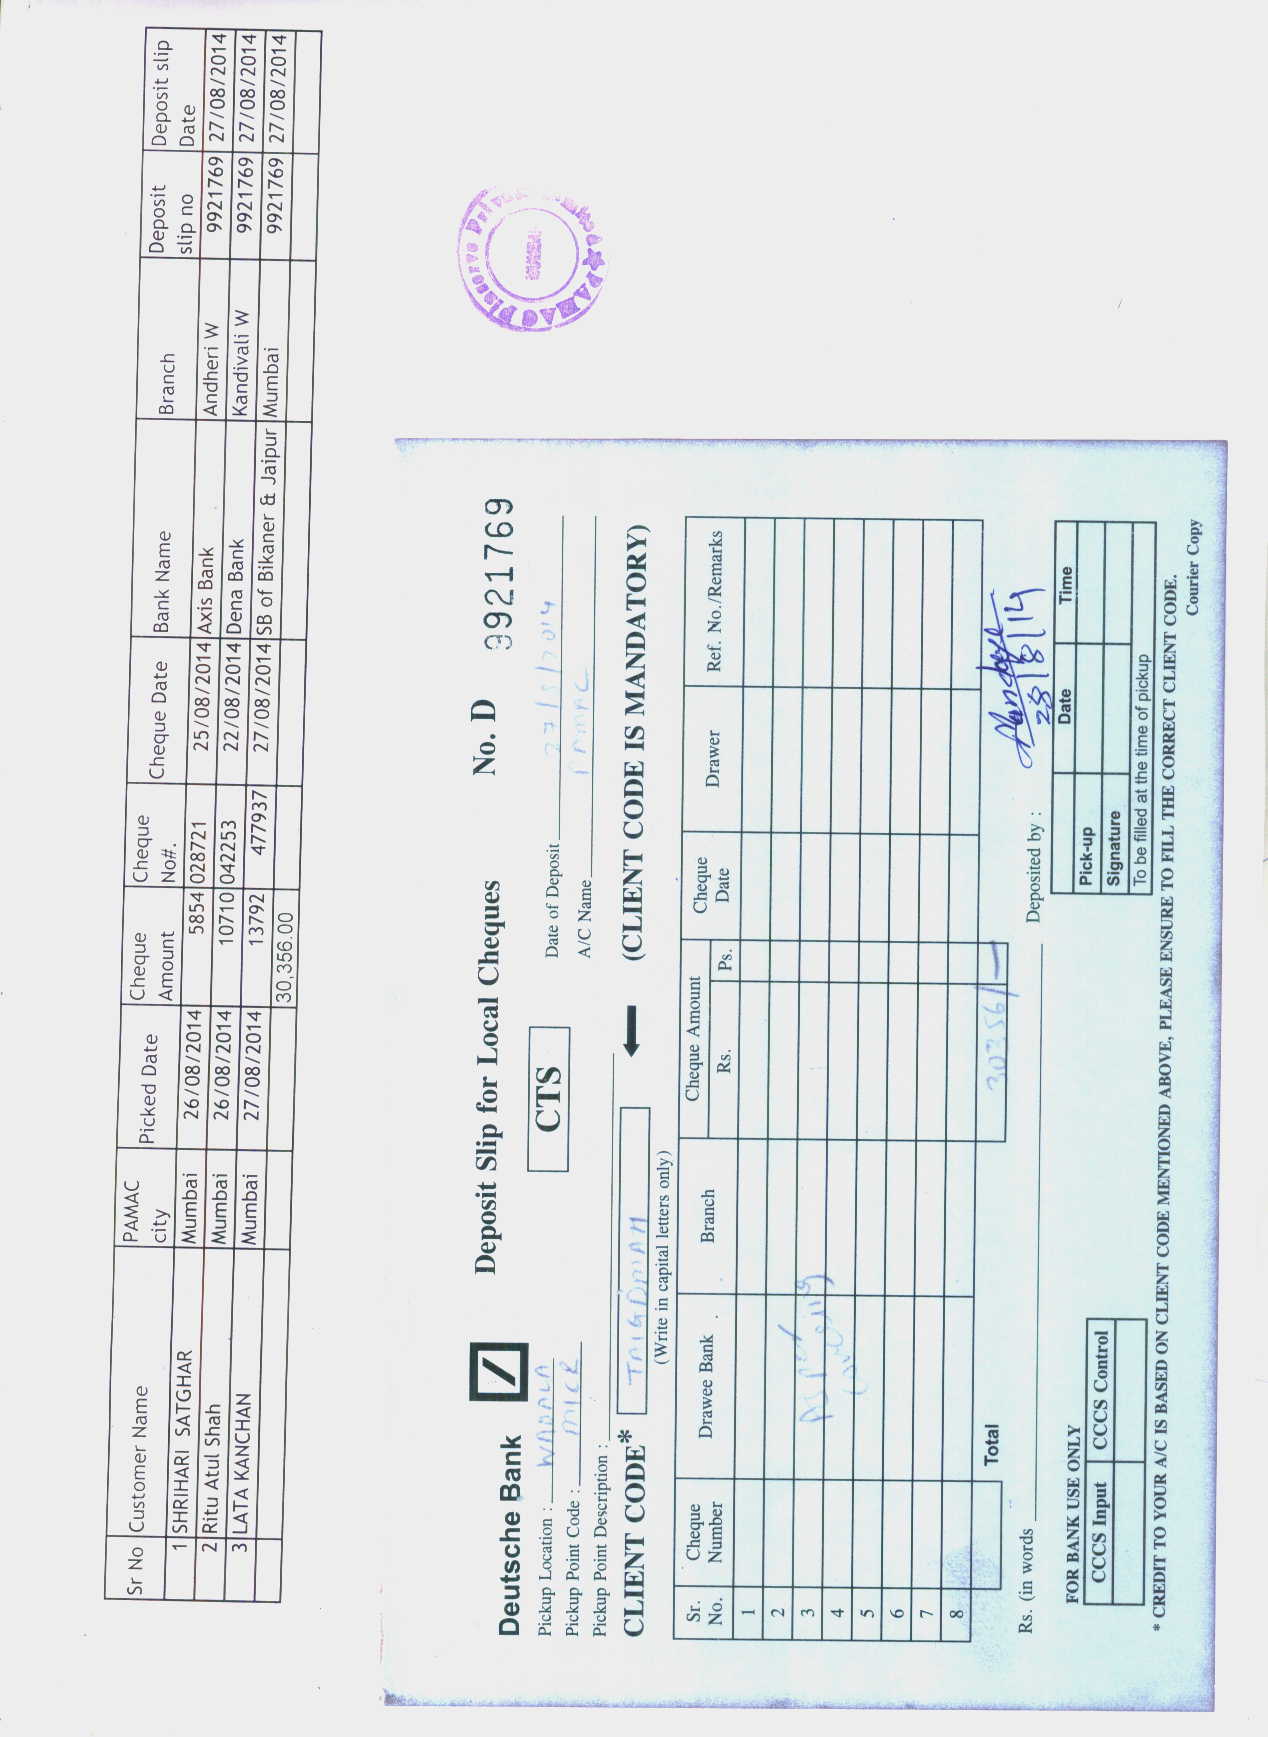 Sr No Customer Name PAMAC city Picked Date Cheque Amount Cheque No#. Cheque Date Bank Name Branch Deposit slip no Deposit slip Date
1 SHRIHARI SATGHAR Mumbai 26/08/2014 5854 028721 25/08/2014 Axis Bank Andheri W 9921769 27/08/2014
2 Ritu Atul Shah Mumbai 26/08/2014 10710 042253 22/08/2014 Dena Bank Kandivali W 9921769 27/08/2014
3 LATA KANCHAN Mumbai 27/08/2014 13792 477937 27/08/2014 SB of Bikaner & Jaipur Mumbai 9921769 27/08/2014
30,356.00
PAMAC
Deutsche Bank Deposit Slip for Local Cheques No. D 9921769
Pickup Location : WADALA CTS Date of Deposit 27/8/2014
Pickup Point Code : MICR A/C Name PAMAC
Pickup Point Description :
CLIENT CODE* (CLIENT CODE IS MANDATORY)
(Write in capital letters only)
Sr. No. Cheque Number Drawee Bank Branch Cheque Amount Rs. Ps. Cheque Date Drawer Ref. No./Remarks
1
2
3
4
5
6
7
8
Total 30356/-
Rs. (in words Deposited by :
28/8/14
FOR BANK USE ONLY
CCCS Input CCCS Control
Date Time
Pick-up
Signature
To be filled at the time of pickup
* CREDIT TO YOUR A/C IS BASED ON CLIENT CODE MENTIONED ABOVE, PLEASE ENSURE TO FILL THE CORRECT CLIENT CODE.
Courier Copy